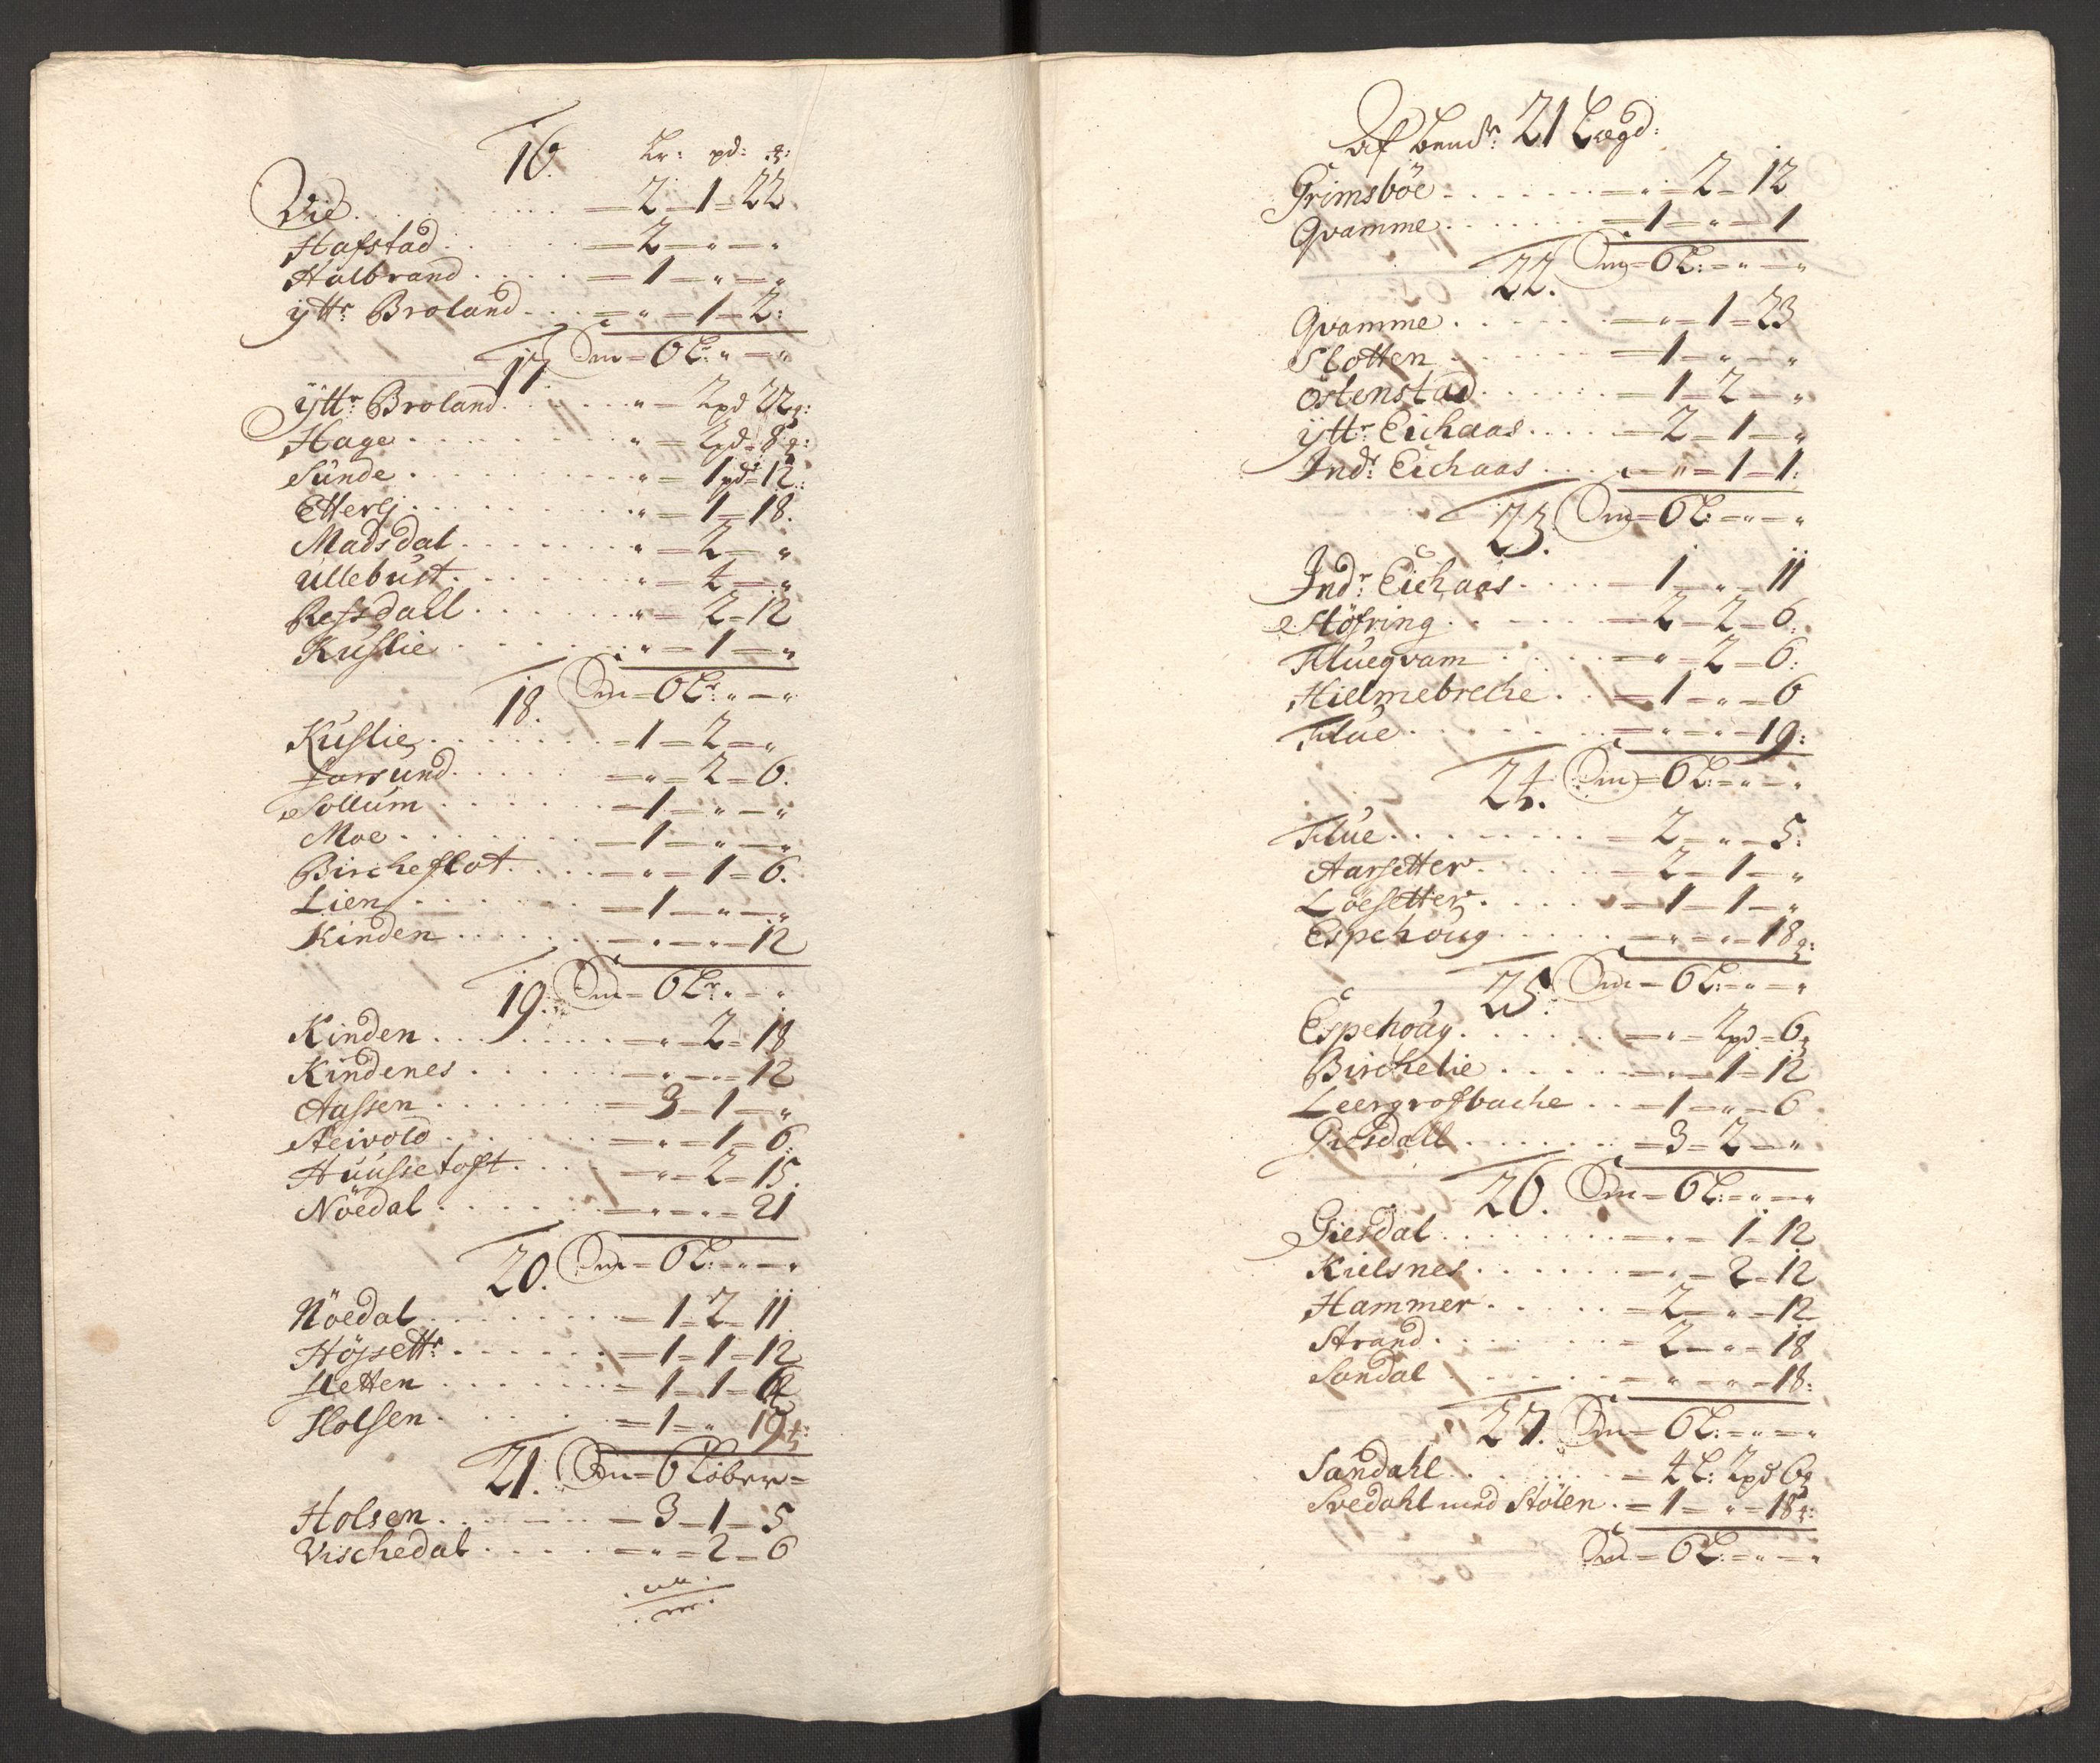 16. Lr: pd: ₰:
Vie . . . = 2 = 1 = 22.
Hafstad . . . = 2 = " = "
Halbrand . . . = 1 = " = "
yttr: Broland . . . = " = 1 = 2:
17. Sm = 6 Lr: " = "
yttr: Broland . . . " = 2pd 22₰:
Hage . . . " = 2pd = 8₰:
Sunde . . . " = 1pd = 12:
Etterlj . . . " = 1 = 18.
Madsdal . . . " = 2 = "
Ullebust . . . " = 4 = "
Refsdall . . . " = 2 = 12
Kuslie . . . " = 1 = "
18. Sm = 6 Lr: " = "
Kuslie . . . = 1 = 2 = "
Farsund . . . = " = 2 = 6.
Sollum . . . = 1 = " = "
Moe . . . = 1 = " = "
Bircheflot . . . = " = 1 = 6.
Lien . . . = 1 = " = "
Kinden . . . = " = " = 12
19. Sm = 6 Lr: " = "
Kinden . . . = " = 2 = 18
Kindenes . . . = " = " = 12
Aassen . . . = 3 = 1 = "
Steivold . . . = " = 1 = 6.
Huussetoft . . . = " = 2 = 15.
Nöedal . . . = " = " = 21
20. Sm = 6 L: = " = "
Nöedal . . . = 1 = 2 = 11
Höjsettr: . . . = 1 = 1 = 12
Sletten . . . = 1 = 1 =
Holsen . . . = 1 = " 19₰:
21. Sm = 6 Löber =
Holsen . . . = 3 = 1 = 5
Vischedal . . . = " = 2 = 6
Af bendte: 21 Lægd:
Grimsböe . . . = " = 2 = 12
Qvamme . . . = 1 = " = 1
22. Sm = 6 L: = " = "
Qvamme . . . = " = 1 = 23
Slotten . . . = 1 = " = "
Östenstad . . . = 1 = 2 = "
yttr: Eichaas . . . = 2 = 1 = "
Indr: Eichaas . . . = " = 1 = 1:
23. Sm = 6 L: = " = "
Indr: Eichaas . . . = 1 = " = 11
Stöfring . . . = 2 = 2 = 6:
Fluegvam . . . = " = 2 = 6:
Hielmebreche . . . = 1 = " = 6
Flue . . . = " = " = 19:
24. Sm = 6 L: = " = "
Flue . . . = 2 = " = 5:
Aarsetter . . . = 2 = 1 = "
Löesetter . . . = 1 = 1 = "
Espehoug . . . = " = " = 18₰:
25. Sm = 6 L: = " = "
Espehoug . . . = " = 2pd = 6₰
Birchelie . . . = " = 1 = 12
Leergrofbache . . = 1 = " = 6.
Giesdall . . . = 3 = 2 = "
26. Sm = 6 L: = " = "
Giesdal . . . = " = 1 = 12
Kielsnes . . . = " = 2 = 12
Hammer . . . = 2 = " = 12
Strand . . . = 2 = " = 18
Sandal . . . = " = " = 18:
27. Sm = 6 L: = " = "
Sandahl . . . = 4 L: 2pd 6₰
Svedahl med Stölen . = 1 = " = 18₰:
Sm = 6 L: = " = "